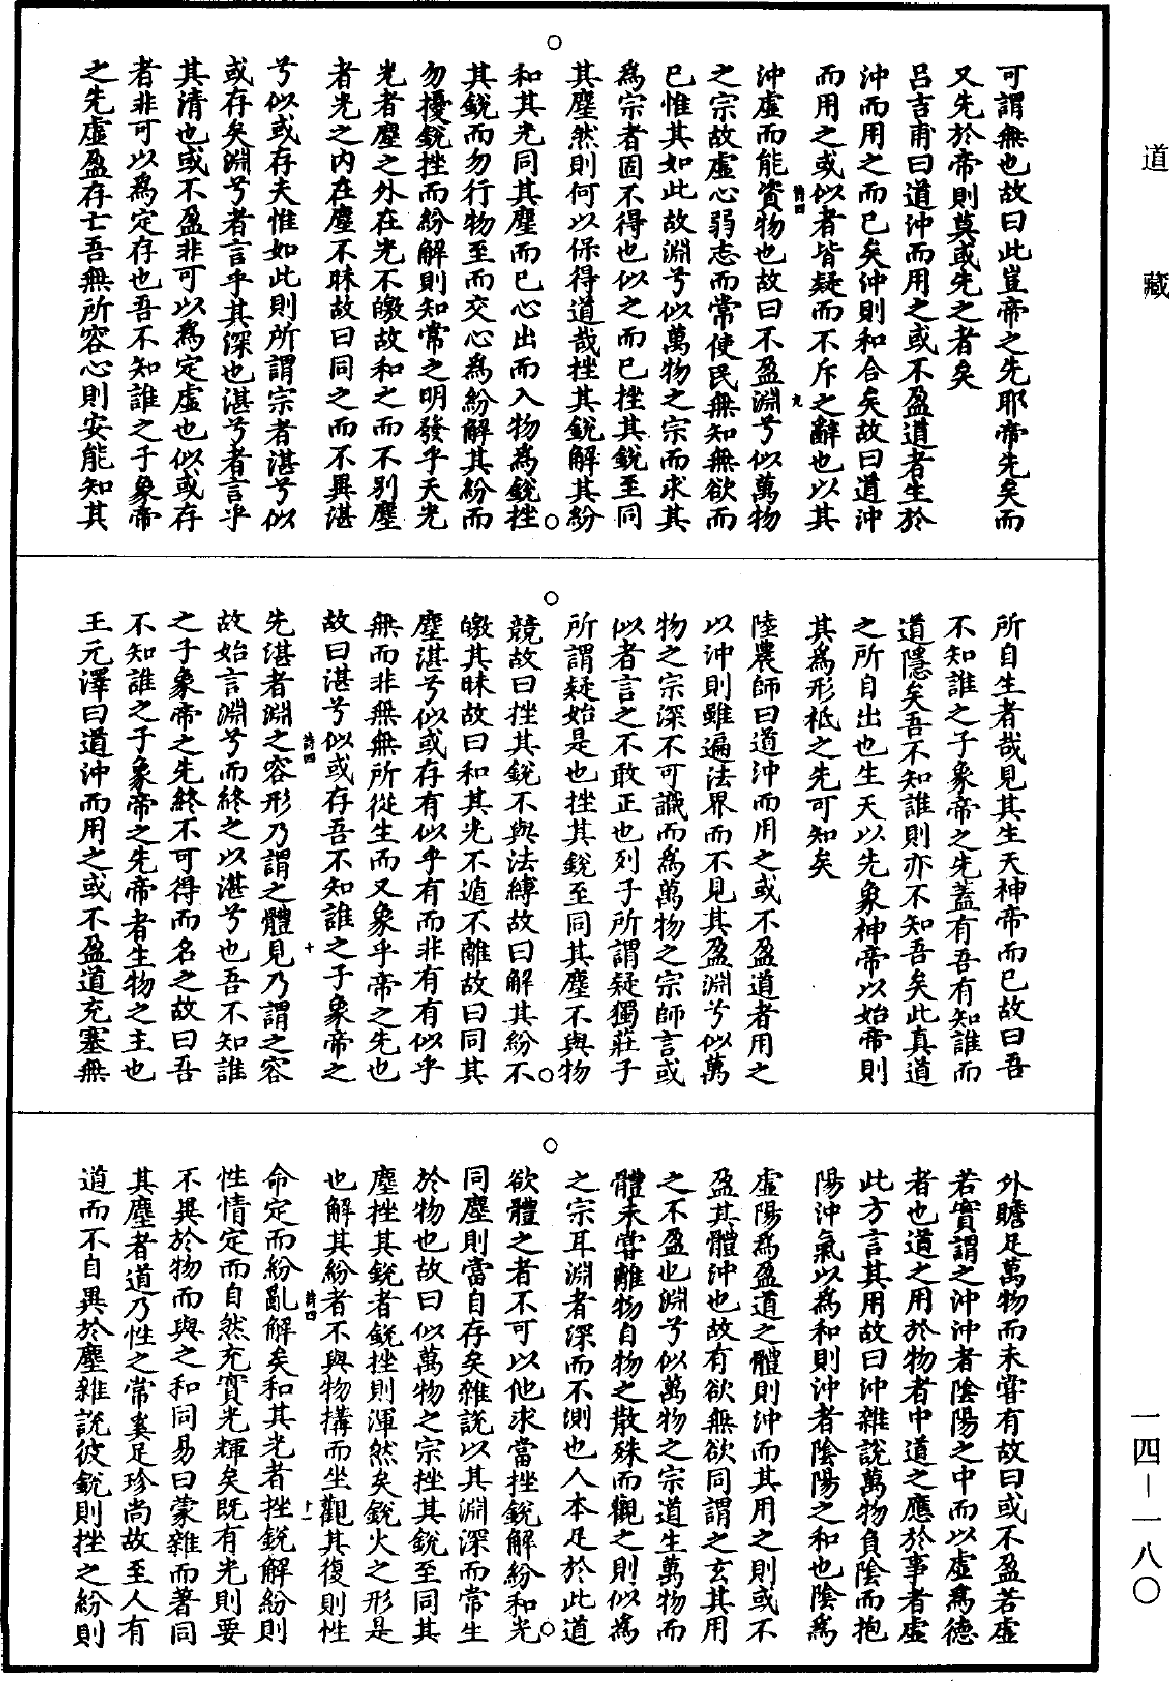 道藏
可謂無也故曰此豈帝之先耶帝先矣而
又先於帝則莫或先之者矣
呂吉甫曰道沖而用之或不盈道者生於
沖而用之而已矣沖則和合矣故曰道沖
而用之或似者皆疑而不斥之辭也以其
詩四
九
沖虛而能資物也故曰不盈淵兮似萬物
之宗故虛心弱志而常使民無知無欲而
已惟其如此故淵兮似萬物之宗而求其
為宗者固不得也似之而已挫其銳至同
其塵然則何以保得道哉挫其銳解其紛
和其光同其塵而已心出而入物為銳挫
其銳而勿行物至而交心為紛解其紛而
勿擾銳挫而紛解則知常之明發乎天光
光者塵之外在光不皦故和之而不別塵
者光之內在塵不昧故曰同之而不異湛
兮似或存夫惟如此則所謂宗者湛兮似
或存矣淵兮者言乎其深也湛兮者言乎
其清也或不盈非可以為定虛也似或存
者非可以為定存也吾不知誰之子象帝
之先虛盈存亡吾無所容心則安能知其
所自生者哉見其生天神帝而已故曰吾
不知誰之子象帝之先蓋有吾有知誰而
道隱矣吾不知誰則亦不知吾矣此真道
之所自出也生天以先象神帝以始帝則
其為形祇之先可知矣
陸農師曰道沖而用之或不盈道者用之
以沖則雖遍法界而不見其盈淵兮似萬
物之宗深不可識而為萬物之宗師言或
似者言之不敢正也列子所謂疑獨莊子
所謂疑始是也挫其銳至同其塵不與物
競故曰挫其銳不與法縛故曰解其紛不
皦其昧故曰和其光不遁不離故曰同其
塵湛兮似或存有似乎有而非有有似乎
無而非無無所從生而又象乎帝之先也
故曰湛兮似或存吾不知誰之子象帝之
詩四
十
先湛者淵之容形乃謂之體見乃謂之容
故始言淵兮而終之以湛兮也吾不知誰
之子象帝之先終不可得而名之故曰吾
不知誰之子象帝之先帝者生物之主也
王元澤曰道沖而用之或不盈道充塞無
外贍足萬物而未嘗有故曰或不盈若虛
若實謂之沖沖者陰陽之中而以虛為德
者也道之用於物者中道之應於事者虛
此方言其用故曰沖雜說萬物負陰而抱
陽沖氣以為和則沖者陰陽之和也陰為
虛陽為盈道之體則沖而其用之則或不
盈其體沖也故有欲無欲同謂之玄其用
之不盈也淵兮似萬物之宗道生萬物而
體未嘗離物自物之散殊而觀之則似為
之宗耳淵者深而不測也人本足於此道
欲體之者不可以他求當挫銳解紛和光
同塵則當自存矣雜說以其淵深而常生
於物也故曰似萬物之宗挫其銳至同其
塵挫其銳者銳挫則渾然矣銳火之形是
也解其紛者不與物搆而坐觀其復則性
詩四
十一
命定而紛亂解矣和其光者挫銳解紛則
性情定而自然充實光輝矣既有光則要
不異於物而與之和同易曰蒙雜而著同
其塵者道乃性之常奚足珍尚故至人有
道而不自異於塵雜說彼銳則挫之紛則
一四—一八〇